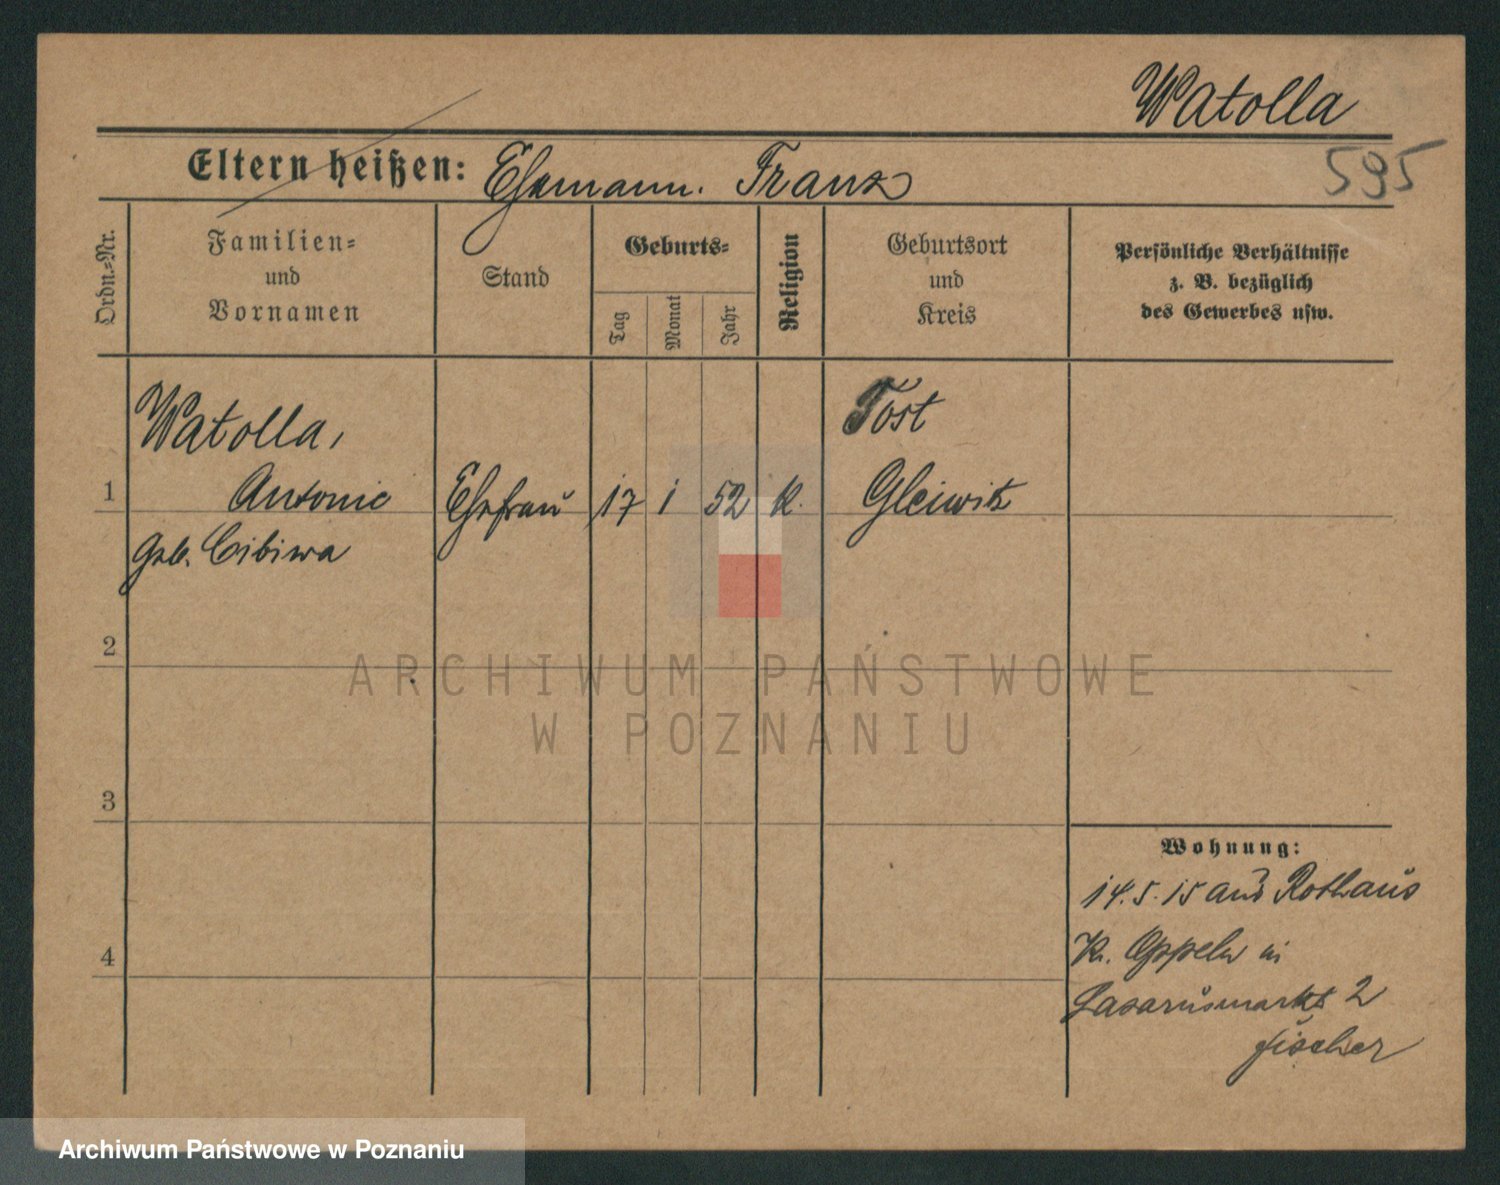 Watolla
595
Eltern heißen: Ehemann. Franz
Ordn.=Nr.
Familien=
und
Vornamen
Stand
Geburts=
Tag
Monat
Jahr
Religion
Geburtsort
und
Kreis
Persönliche Verhältnisse
z. B. bezüglich
des Gewerbes usw.
Watolla,
Tost
1 Antonie Ehefrau 17 1 52 k. Gleiwitz
geb. Cibiwa
2
ARCHIWUM PAŃSTWOWE
W POZNANIU
3
Wohnung:
14.5.15 aus Rothaus
Kr. Oppeln in
4
Lasarusmarkt 2
Fischer
Archiwum Państwowe w Poznaniu